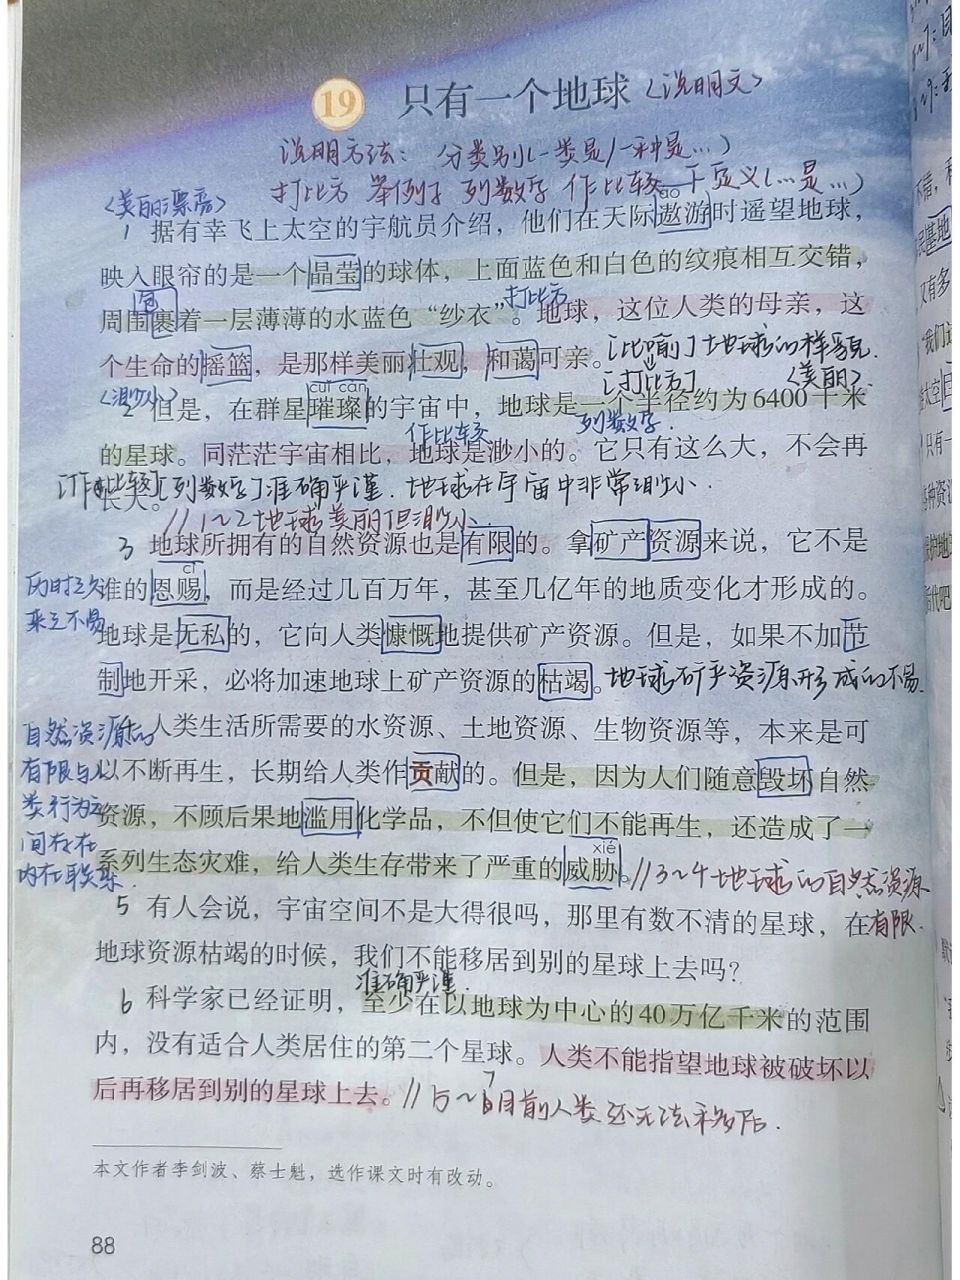 19 只有一个地球〈说明文〉
说明方法：（分类别（一类是/一种是…）
打比方 举例子 列数字 作比较 下定义（…是…）
〈美丽漂亮〉
áo
1 据有幸飞上太空的宇航员介绍，他们在天际遨游时遥望地球，
映入眼帘的是一个晶莹的球体，上面蓝色和白色的纹痕相互交错，
打比方
周围裹着一层薄薄的水蓝色“纱衣”。地球，这位人类的母亲，这
个生命的摇篮，是那样美丽壮观，和蔼可亲。
地球的样貌
[打比方] 〈美丽〉.
〈渺小〉
cuǐ càn
2 但是，在群星璀璨的宇宙中，地球是一个半径约为6400千米
作比较 列数字.
的星球。同茫茫宇宙相比，地球是渺小的。它只有这么大，不会再
长大。
[作比较] [列数字]准确严谨.地球在宇宙中非常渺小.
//1~2地球美丽但渺小.
3 地球所拥有的自然资源也是有限的。拿矿产资源来说，它不是
cì
谁的恩赐，而是经过几百万年，甚至几亿年的地质变化才形成的。
历时之久
来之不易
地球是无私的，它向人类慷慨地提供矿产资源。但是，如果不加节
制地开采，必将加速地球上矿产资源的枯竭。地球矿产资源形成的不易.
4 人类生活所需要的水资源、土地资源、生物资源等，本来是可
以不断再生，长期给人类作贡献的。但是，因为人们随意毁坏自然
资源，不顾后果地滥用化学品，不但使它们不能再生，还造成了一
xié
系列生态灾难，给人类生存带来了严重的威胁。//3~4地球的自然资源
有限.
自然资源的
有限与人
类行为之
间存在
内在联系.
5 有人会说，宇宙空间不是大得很吗，那里有数不清的星球，在
地球资源枯竭的时候，我们不能移居到别的星球上去吗？
准确严谨.
6 科学家已经证明，至少在以地球为中心的40万亿千米的范围
内，没有适合人类居住的第二个星球。人类不能指望地球被破坏以
后再移居到别的星球上去。//5~7目前人类还无法移居.
本文作者李剑波、蔡士魁，选作课文时有改动。
88